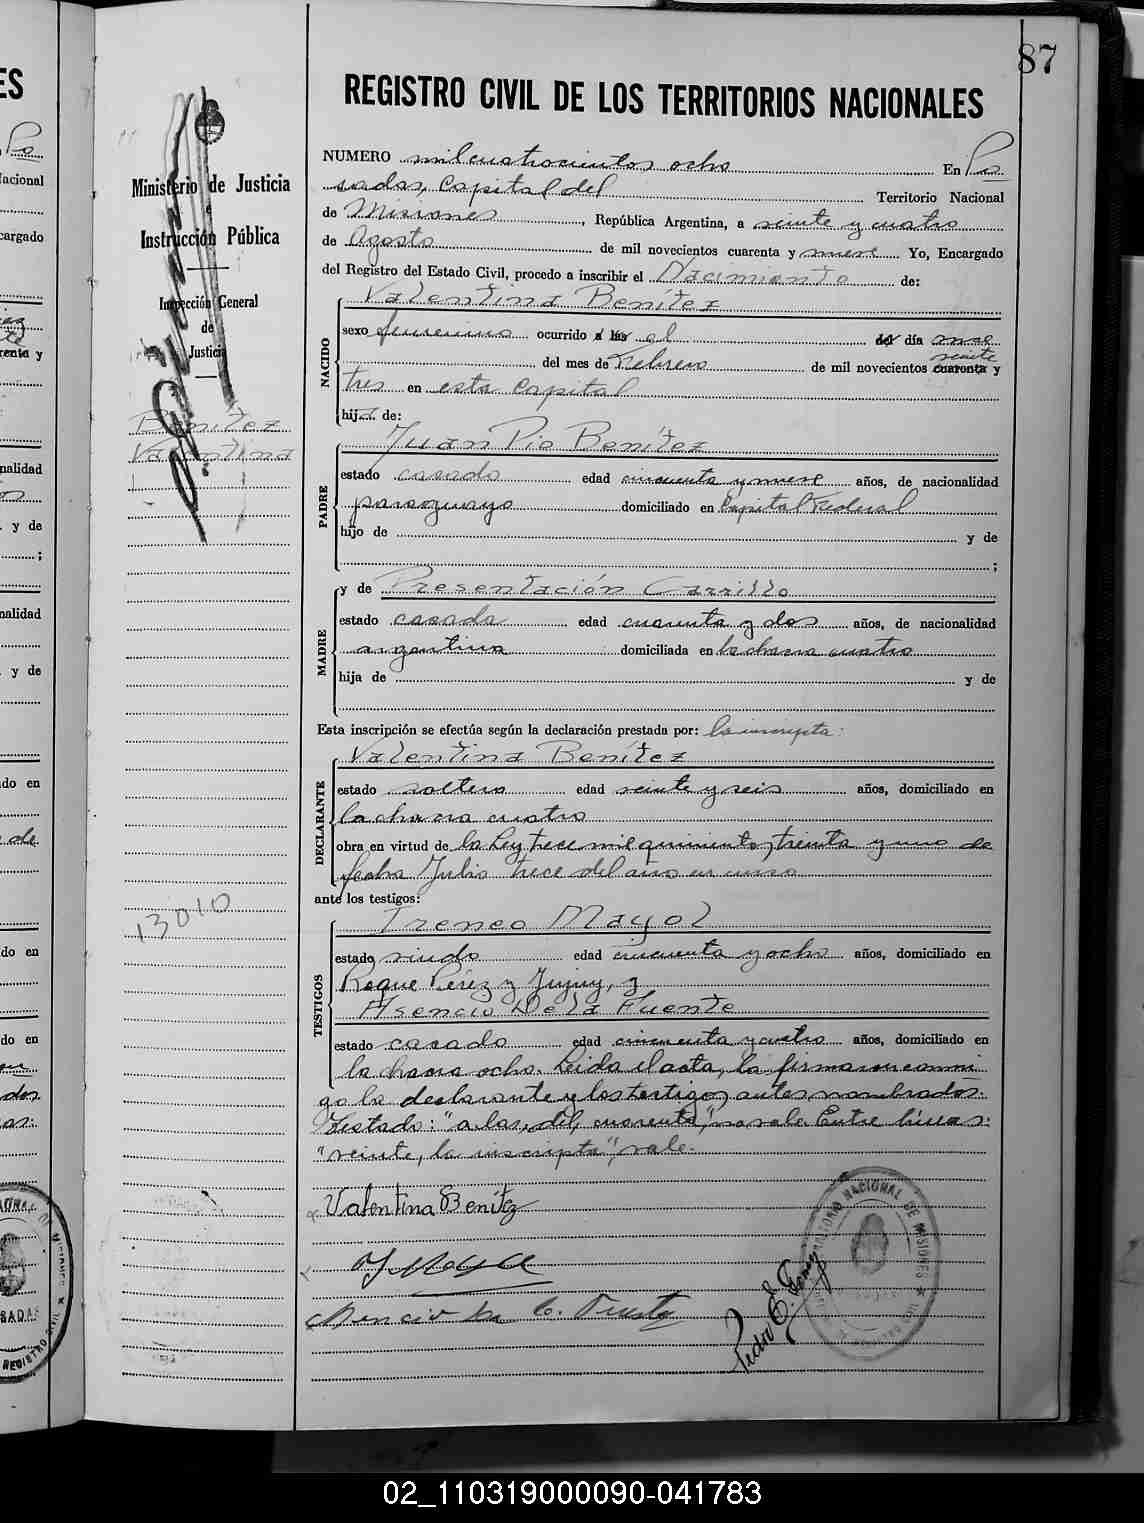 87
REGISTRO CIVIL DE LOS TERRITORIOS NACIONALES
Ministerio de Justicia
e
Instrucción Pública
Inspección General
de
Justicia
Benitez
Valentina
13010
NUMERO mil cuatrocientos ocho En Po
sadas, Capital del Territorio Nacional
de Misiones, República Argentina, a veinte y cuatro
de Agosto de mil novecientos cuarenta y nueve Yo, Encargado
del Registro del Estado Civil, procedo a inscribir el Nacimiento de:
NACIDO
Valentina Benítez
sexo femenino ocurrido a las el del día once
veinte
del mes de Febrero de mil novecientos cuarenta y
tres en esta capital
hija de:
PADRE
Juan Pio Benítez
estado casado edad cincuenta y nueve años, de nacionalidad
paraguayo domiciliado en Capital Federal
hijo de y de
;
MADRE
y de Presentación Carrillo
estado casada edad cuarenta y dos años, de nacionalidad
argentina domiciliada en la chacra cuatro
hija de y de
Esta inscripción se efectúa según la declaración prestada por: la inscripta:
DECLARANTE
Valentina Benítez
estado soltera edad veinte y seis años, domiciliado en
la chacra cuatro
obra en virtud de la Ley trece mil quinientos treinta y uno de
fecha Julio trece del año en curso
ante los testigos:
TESTIGOS
Ireneo Mayol
estado viudo edad cincuenta y ocho años, domiciliado en
Roque Pérez y Jujuy, y
Asencio De la Fuente
estado casado edad cincuenta y cuatro años, domiciliado en
la chacra ocho. Leida el acta, la firmaron conmi
go la declarante y los testigos antes nombrados.
Testado: "a las, del, cuarenta", no vale. Entre líneas:
"veinte, la inscripta", vale.
Valentina Benítez
I Mayol
Asencio De la Fuente
Pedro E.
NACIONAL DE MISIONES
02_110319000090-041783